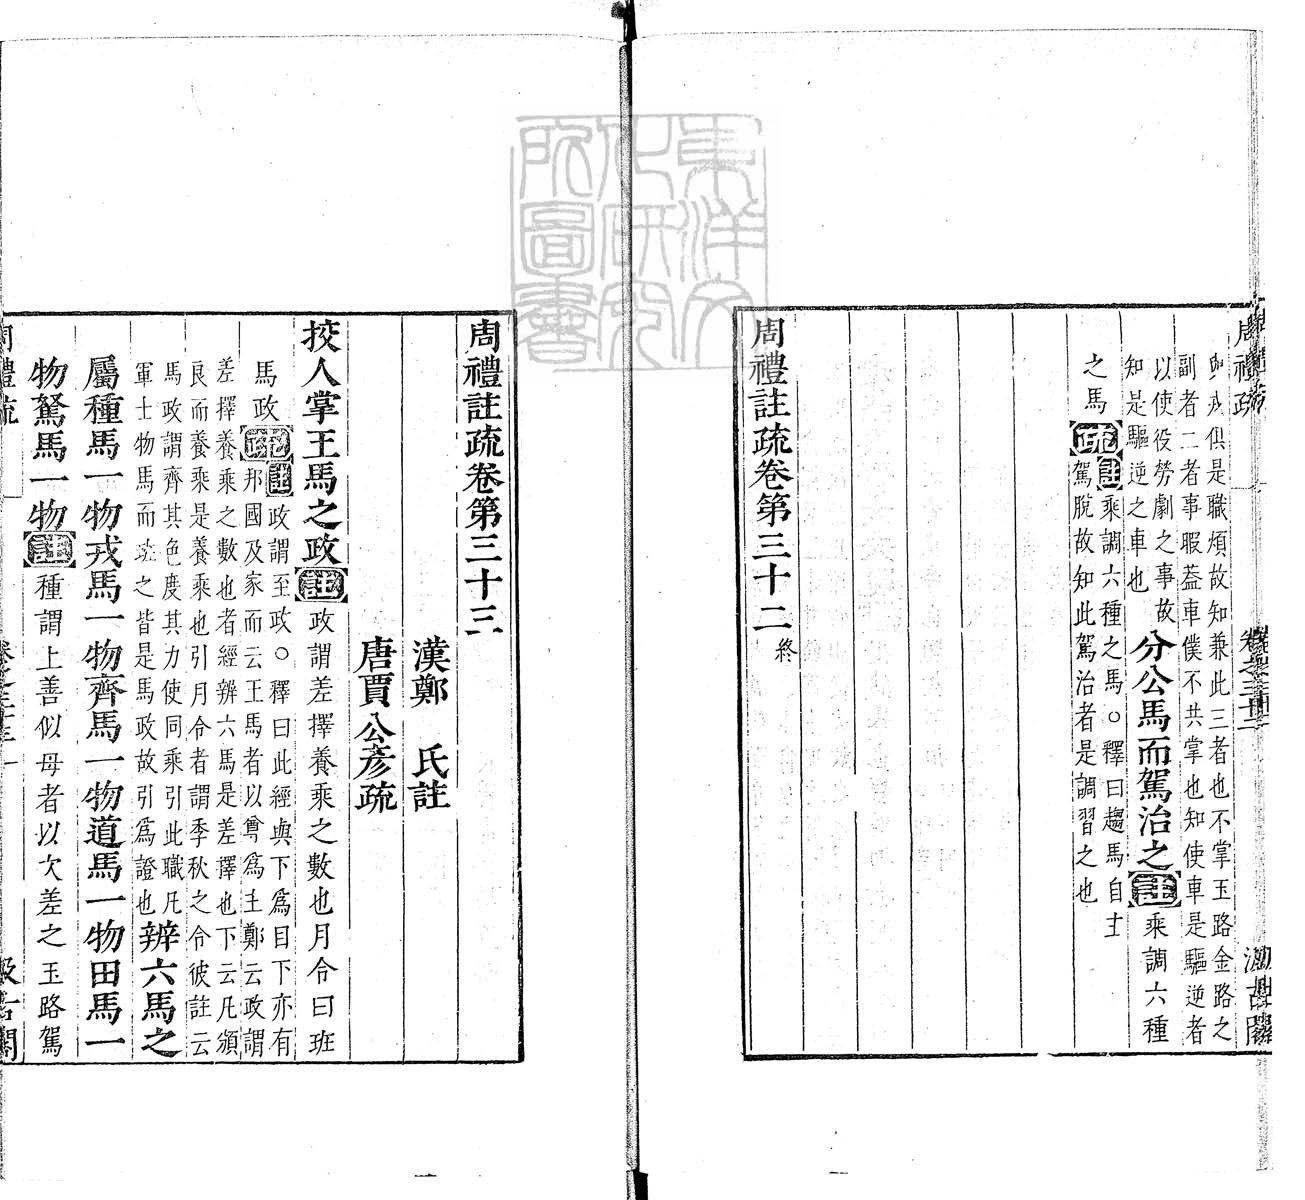 周禮疏
卷之三十二
與戎俱是職煩故知兼此三者也不掌玉路金路之
副者二者事暇葢車僕不共掌也知使車是驅逆者
以使役勞劇之事故
知是驅逆之車也
分公馬而駕治之註乘調六種
之馬疏註乘調六種之馬○釋曰趣馬自主
駕脫故知此駕治者是調習之也
周禮註疏卷第三十二終
周禮註疏卷第三十三
漢鄭　氏註
唐賈公彥疏
挍人掌王馬之政註政謂差擇養乘之數也月令曰班
馬政疏註政謂至政○釋曰此經與下爲目下亦有
邦國及家而云王馬者以尊爲主鄭云政謂
差擇養乘之數也者經辨六馬是差擇也下云凡頒
良而養乘是養乘也引月令者謂季秋之令彼註云
馬政謂齊其色度其力使同乘引此職凡
軍士物馬而頒之皆是馬政故引爲證也
辨六馬之
屬種馬一物戎馬一物齊馬一物道馬一物田馬一
物駑馬一物註種謂上善似母者以次差之玉路駕
周禮疏
卷之三十三
一
汲古閣
東洋文化研究所圖書